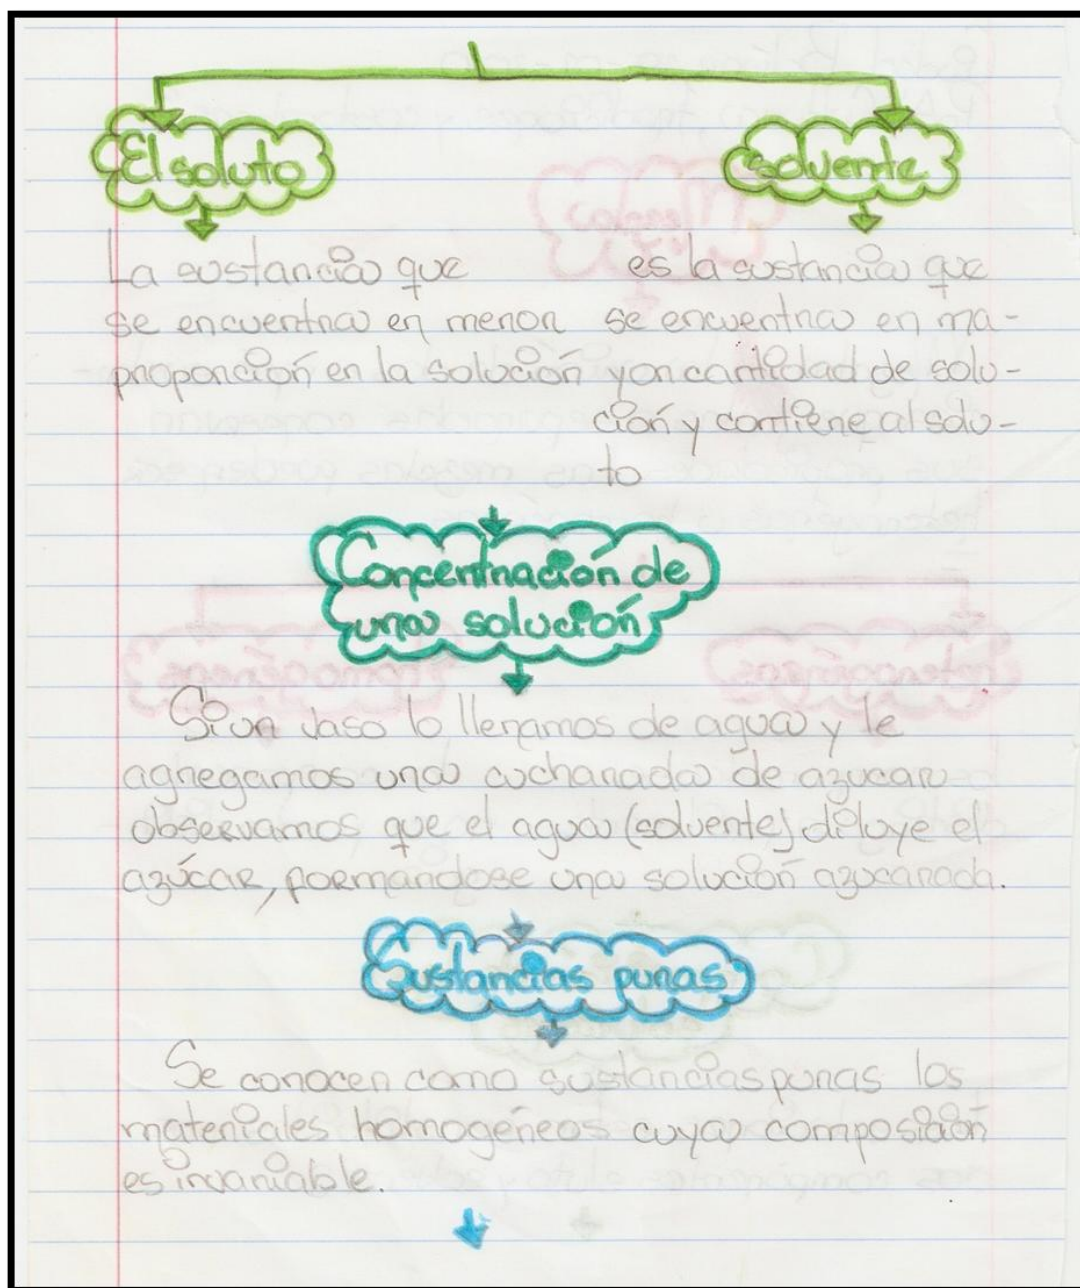 El soluto
solvente
La sustancia que
se encuentra en menor
proporción en la solución
es la sustancia que
se encuentra en ma-
yor cantidad de solu-
ción y contiene al solu-
to
Concentración de
una solución
Si un vaso lo llenamos de agua y le
agregamos una cucharada de azucar
observamos que el agua (solvente) diluye el
azúcar, formandose una solución azucarada.
Sustancias puras
Se conocen como sustancias puras los
materiales homogéneos cuya composición
es invariable.